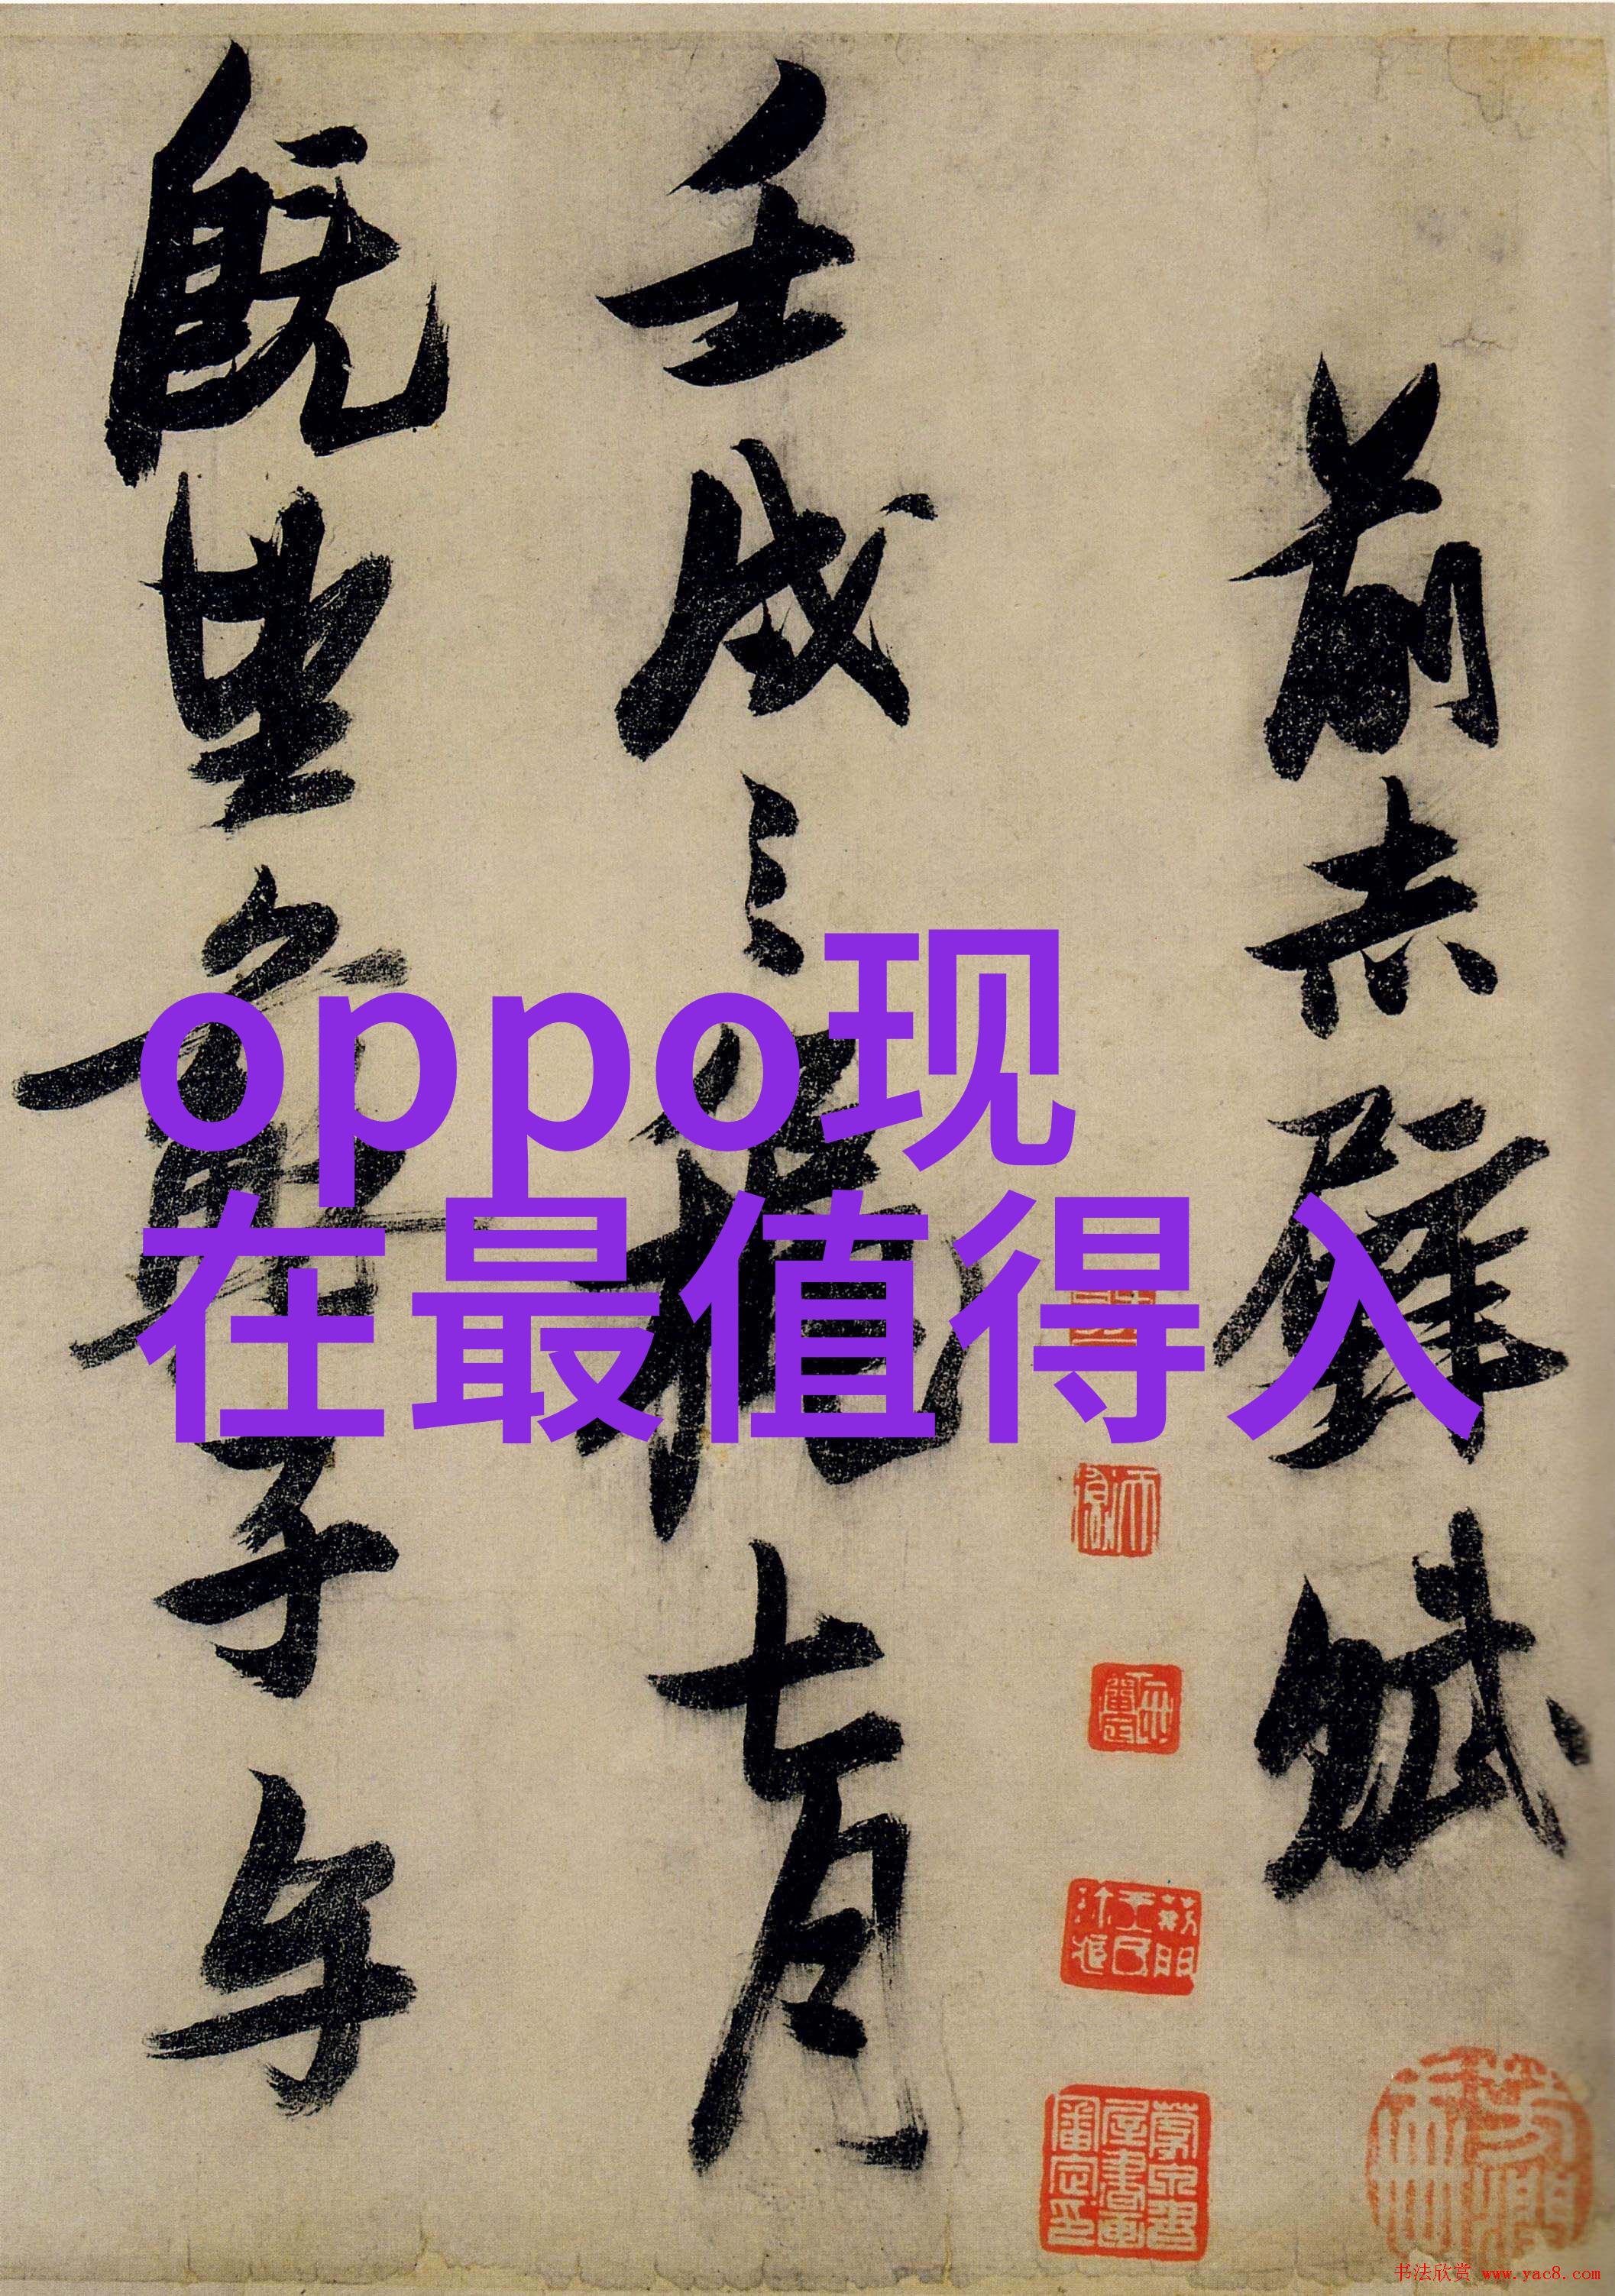 前赤壁賦
壬戌之秋七月
既望蘇子与
oppo现
在最值得入
书法欣赏 www.yac8.com